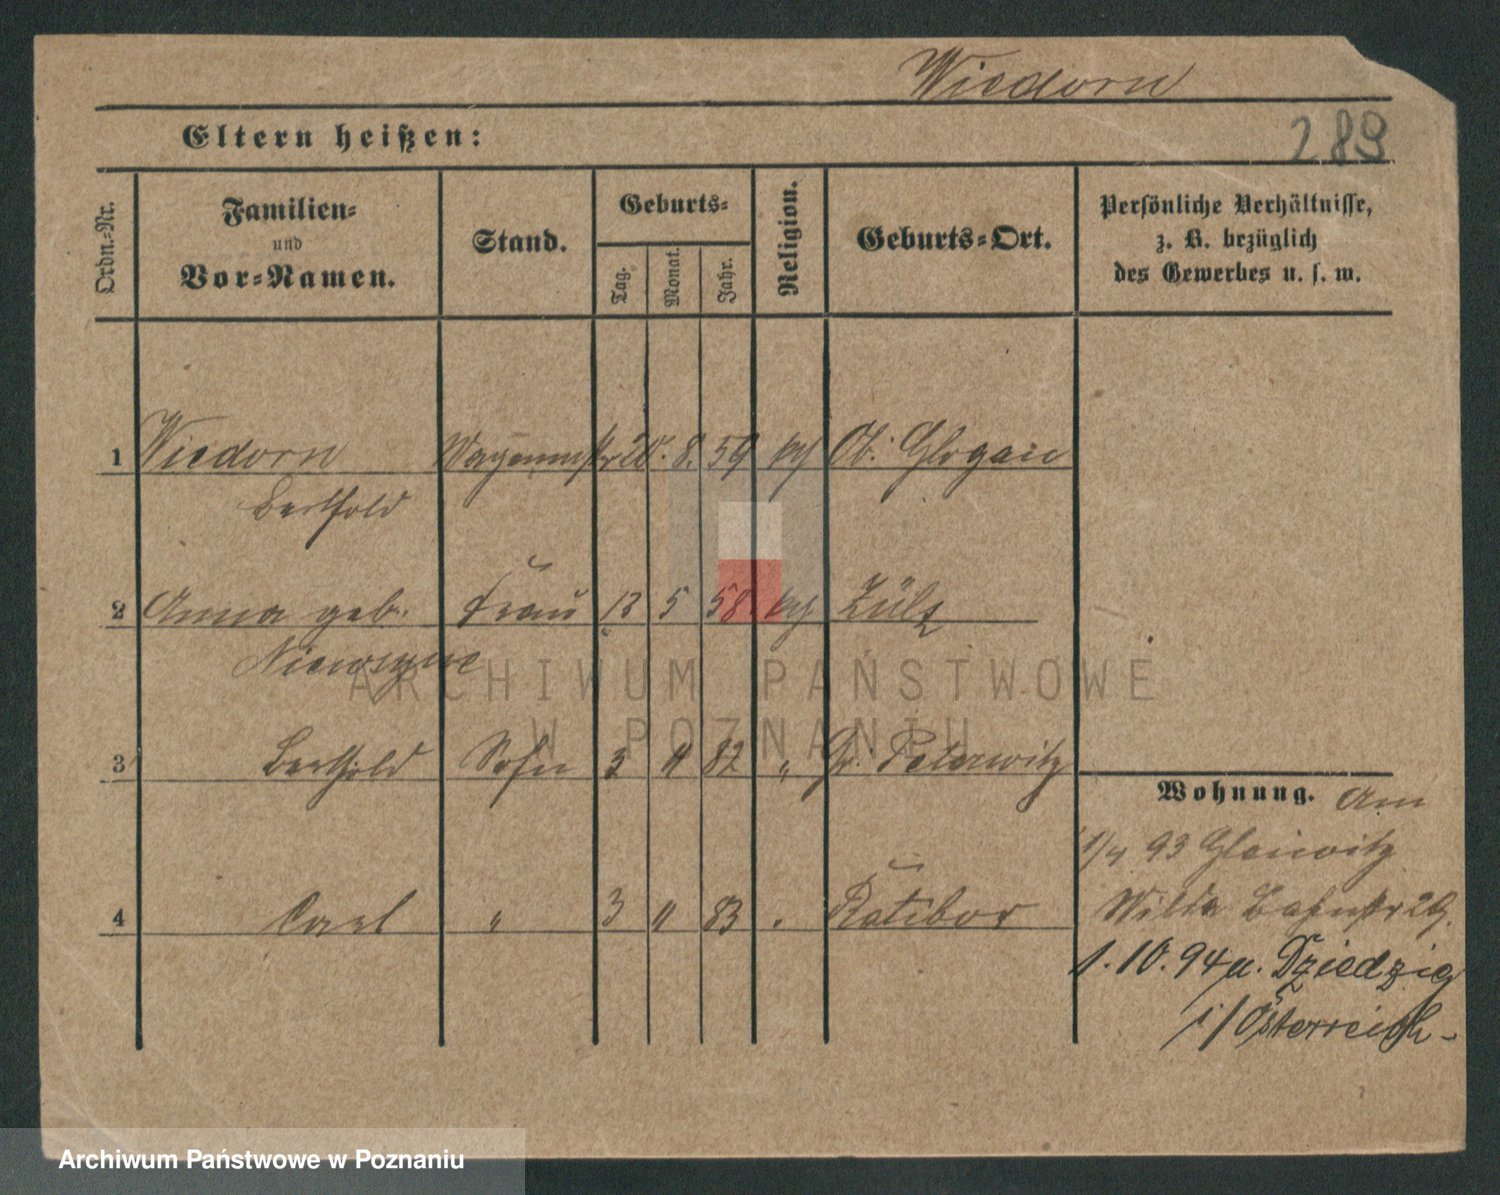 Wiedorn
Eltern heißen:
289
Ordn.-Nr.
Familien-
und
Vor-Namen.
Stand.
Geburts-
Tag.
Monat.
Jahr.
Religion.
Geburts-Ort.
Persönliche Verhältnisse,
z. B. bezüglich
des Gewerbes u. s. w.
1 Wiedorn Wagenmstr 20. 8. 59 kath Ob. Glogau
Berthold
2 Anna geb. Frau 13 5 58. kath Zülz
3 Berthold Sohn 3 11 82 „ Gr. Peterwitz
4 Carl " 3 11 83 . Ratibor
Wohnung. Am
1/4 93 Gleiwitz
Wilda Bahnstr 29.
1. 10. 94 n. Dziedzig
i/Österreich-
ARCHIWUM PAŃSTWOWE
W POZNANIU
Archiwum Państwowe w Poznaniu